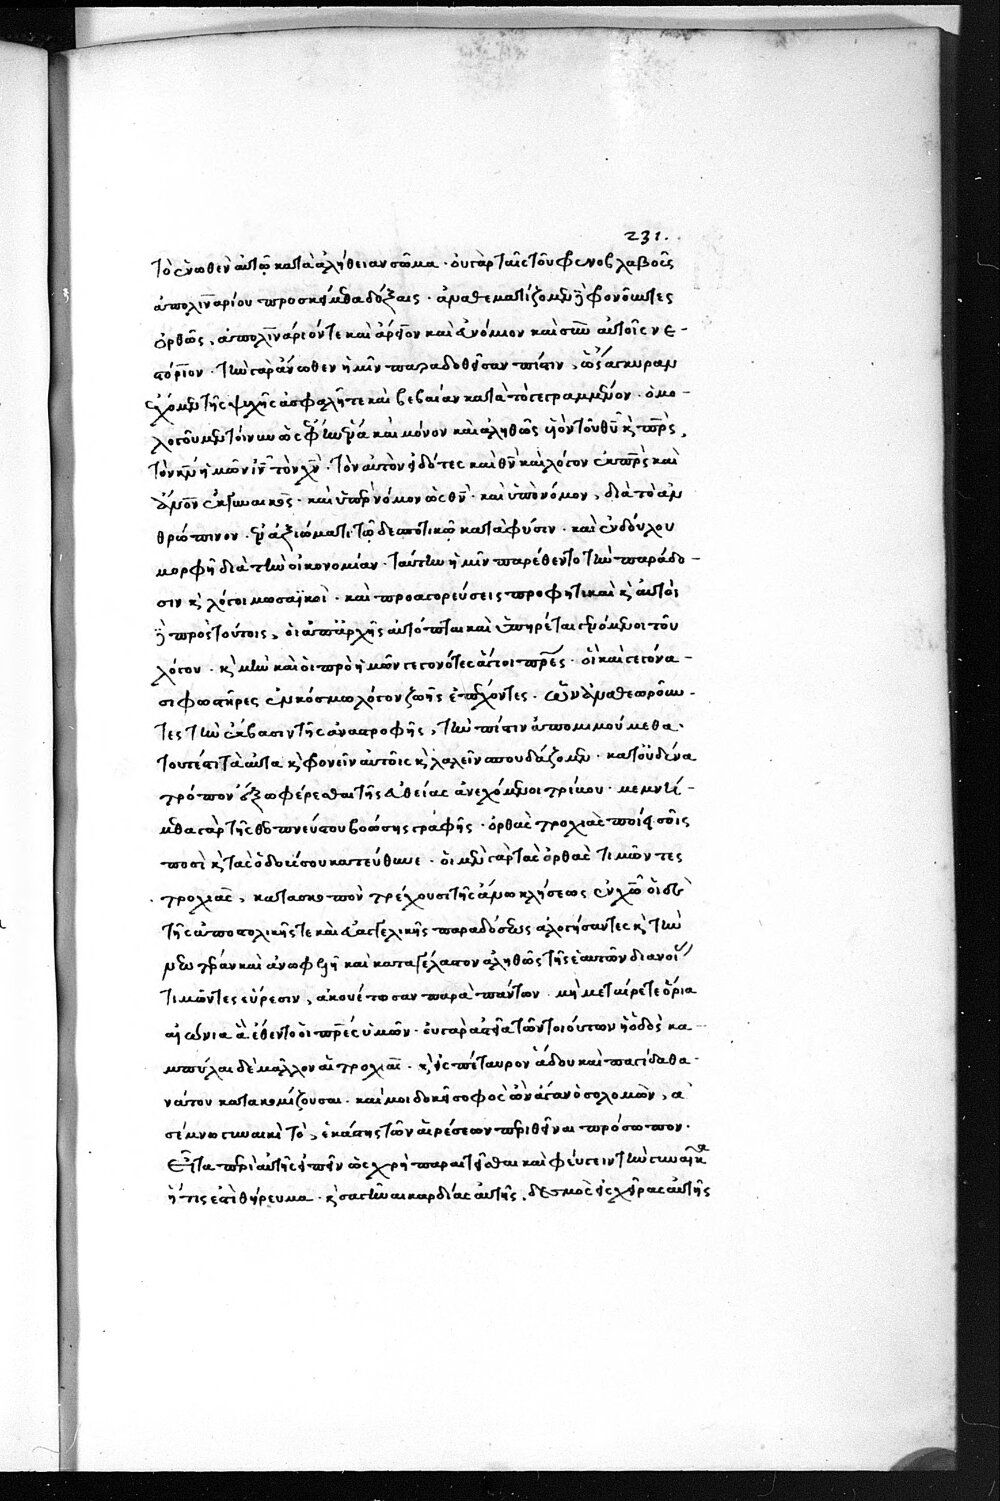 231.
τὸ ἑνωθὲν αὐτῷ κατὰ ἀλήθειαν σῶμα · οὐ γὰρ ταῖς τοῦ φρενοβλαβοῦς
ἀπολιναρίου προσκείμεθα δόξαις · ἀναθεματίζομεν ἢ φρονοῦντες
ὀρθῶς, ἀπολινάριόν τε καὶ ἄρειον καὶ εὐνόμιον καὶ σὺν αὐτοῖς νε-
στόριον · τὴν γὰρ ἄνωθεν ἡμῖν παραδοθεῖσαν πίστιν, ὡς ἄγκυραν
ἔχομεν τῆς ψυχῆς ἀσφαλῆ τε καὶ βεβαίαν κατὰ τὸ γεγραμμένον · ὁμο-
λογοῦμεν τοίνυν ὡς καὶ μόνον καὶ ἀληθῶς υἱὸν τοῦ θῦ κ πρς,
τὸν κν ἡμῶν ιν τὸν χν · τὸν αὐτὸν εἰδότες καὶ θν καὶ λόγον ἐκ πρς καὶ
ἄνον ἐκ γυναικὸς · καὶ ὑπὲρ νόμον ὡς θν · καὶ ὑπὸ νόμον, διὰ τὸ ἀν
θρώπινον · ἐν ἀξιώματι τῷ δεσποτικῷ κατὰ φύσιν · καὶ ἐν δούλου
μορφῇ διὰ τὴν οἰκονομίαν · ταύτην ἡμῖν παρέθεντο τὴν παράδο-
σιν κ λόγοι μωσαϊκοὶ · καὶ προαγορεύσεις προφητικαὶ κ αὐτοὶ
πρὸς τούτοις, οἱ ἀπ' ἀρχῆς αὐτόπται καὶ ὑπηρέται γενόμενοι τοῦ
λόγου · κ μὴν καὶ οἱ πρὸ ἡμῶν γεγονότες ἅγιοι πρες · οἳ καὶ γεγόνα-
σι φωστῆρες ἐν κόσμω λόγον ζωῆς ἐπέχοντες · ὧν ἀναθεωροῦν-
τες τὴν ἔκβασιν τῆς ἀναστροφῆς, τὴν πίστιν ἀπομιμούμεθα ·
τουτέστι τὰ αὐτὰ κ φρονεῖν αὐτοῖς κ λαλεῖν σπουδάζομεν · κατ' οὐδένα
τρόπον ἔξω φέρεσθαι τῆς εὐθείας ἀνεχόμενοι τρίβου · μεμνή-
μεθα γὰρ τῆς θεοπνεύστου βοώσης γραφῆς · ὀρθὰς τροχιὰς ποίει σοῖς
ποσὶ κ τὰς ὁδούς σου κατεύθυνε · οἱ μὲν γὰρ τὰς ὀρθὰς τιμῶντες
τροχιὰς, κατὰ σκοπὸν τρέχουσι τῆς ἄνω κλήσεως ἐν χῷ οἱ δὲ
τῆς ἀποστολικῆς τε καὶ εὐαγγελικῆς παραδόσεως ἀλογήσαντες κ τὴν
καὶ ἀνωφελῆ καὶ καταγέλαστον ἀληθῶς τῆς ἑαυτῶν διανοί
τιμῶντες εὕρεσιν, ἀκουέτωσαν παρὰ πάντων · μὴ μεταίρετε ὅρια
αἰώνια ἃ ἔθεντο οἱ πρες ὑμῶν · οὐ γὰρ τῶν τοιούτων ἡ ὁδὸς κα-
μπύλαι δὲ μᾶλλον αἱ τροχιαὶ · κ εἰς πέταυρον ἅδου καὶ παγίδα θα-
νάτου κατακομίζουσαι · καί μοι δοκεῖ σοφὸς ὢν ἄγαν ὁ σολομὼν, ἀ
σέμνω γυναικὶ τὸ, ἑκάστης τῶν αἱρέσεων περιθεῖναι πρόσωπον ·
Εἶτα περὶ αὐτῆς εἰπεῖν ὡς χρὴ παραιτεῖσθαι καὶ φεύγειν τὴν γυναῖκα
ἥτις ἐστὶ θήρευμα · κ σαγήναι καρδίας αὐτῆς, δεσμὸς εἰς χεῖρας αὐτῆς